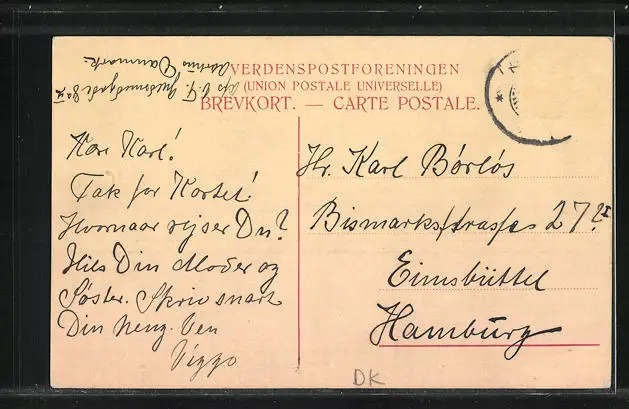 VERDENSPOSTFORENINGEN
(UNION POSTALE UNIVERSELLE)
BREVKORT. — CARTE POSTALE.
Danmark.
Kære Karl!
Tak for Kortet!
Hvornaar rejser Du?
Hils Din Moder og
Søster. Skriv snart
Din heng. Ven
Viggo
Hr. Karl Börlös
Bismarksstrasse 27
Eimsbüttel
Hamburg
DK